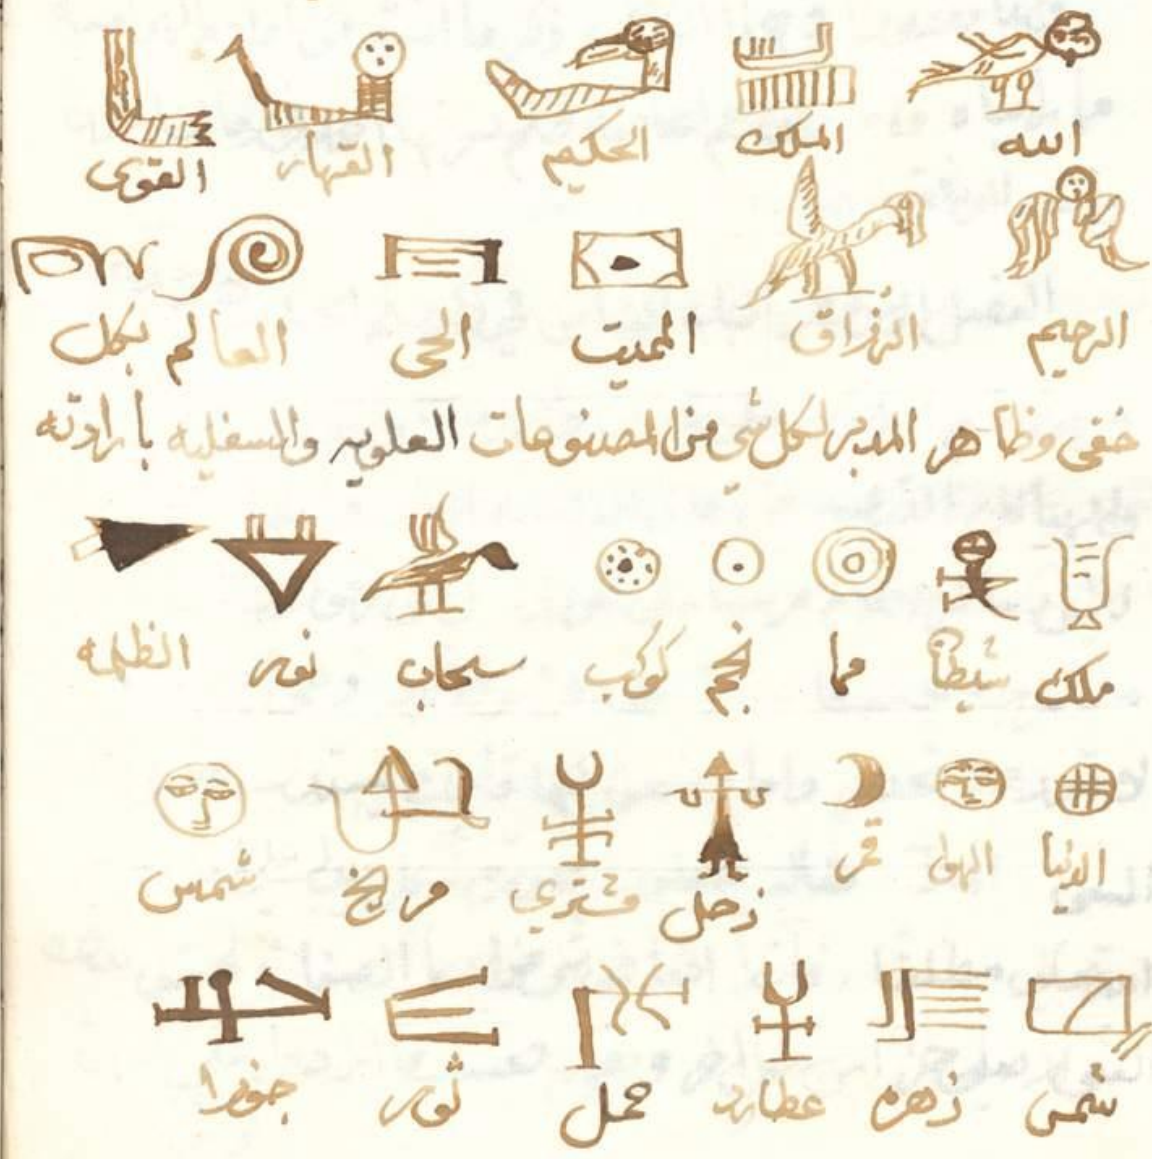 الله الملك الحكيم القهار القوى
الرحيم الرزاق المميت الحى العالم بكل
خفى وظاهر المدبر لكل شي من المصنوعات العلويه والسفليه بارادته
ملك شيطان سما نجم كوكب سحاب نور الظلمه
الدنيا الهوا قمر زحل مشتري مريخ شمس
شمس زهره عطارد حمل ثور جوزا